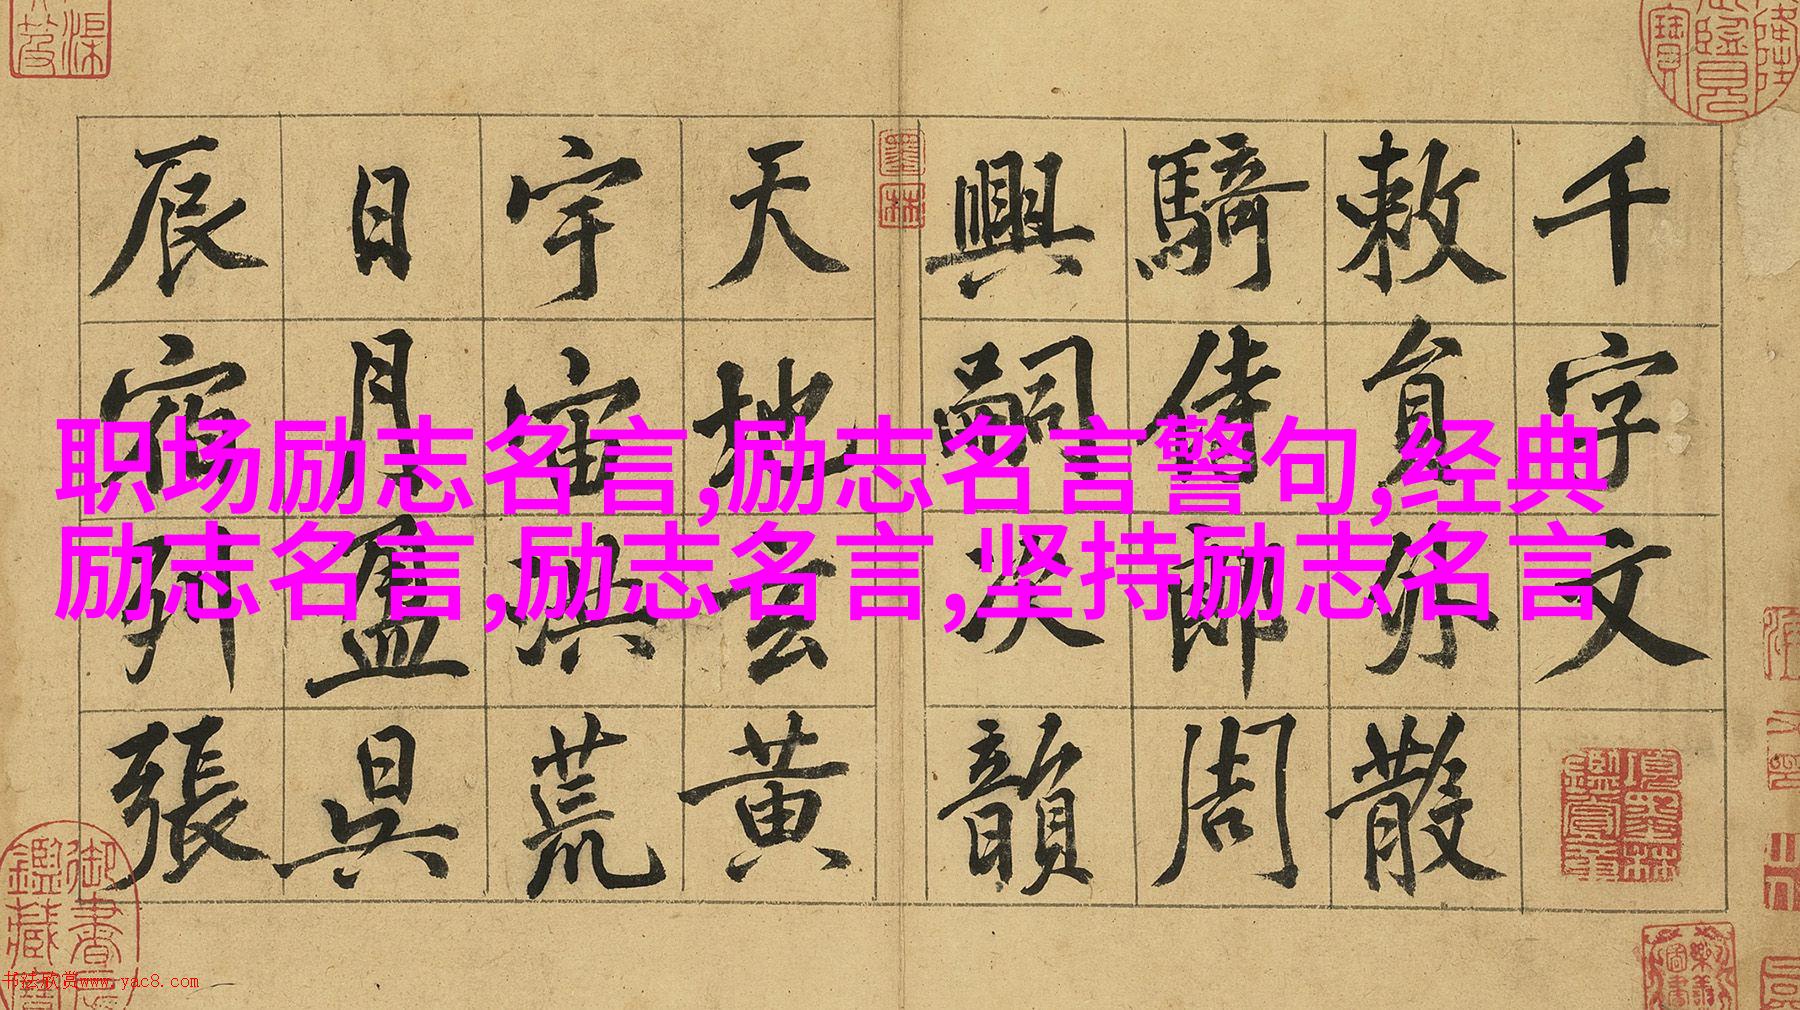 职场励志名言,励志名言警句,经典
励志名言,励志名言,坚持励志名言
千字文
敕員外散
騎侍郎周
興嗣次韻
天地玄黄
宇宙洪荒
日月盈昃
辰宿列張
墨林
项墨林鑑賞章
书法欣赏www.yac8.com